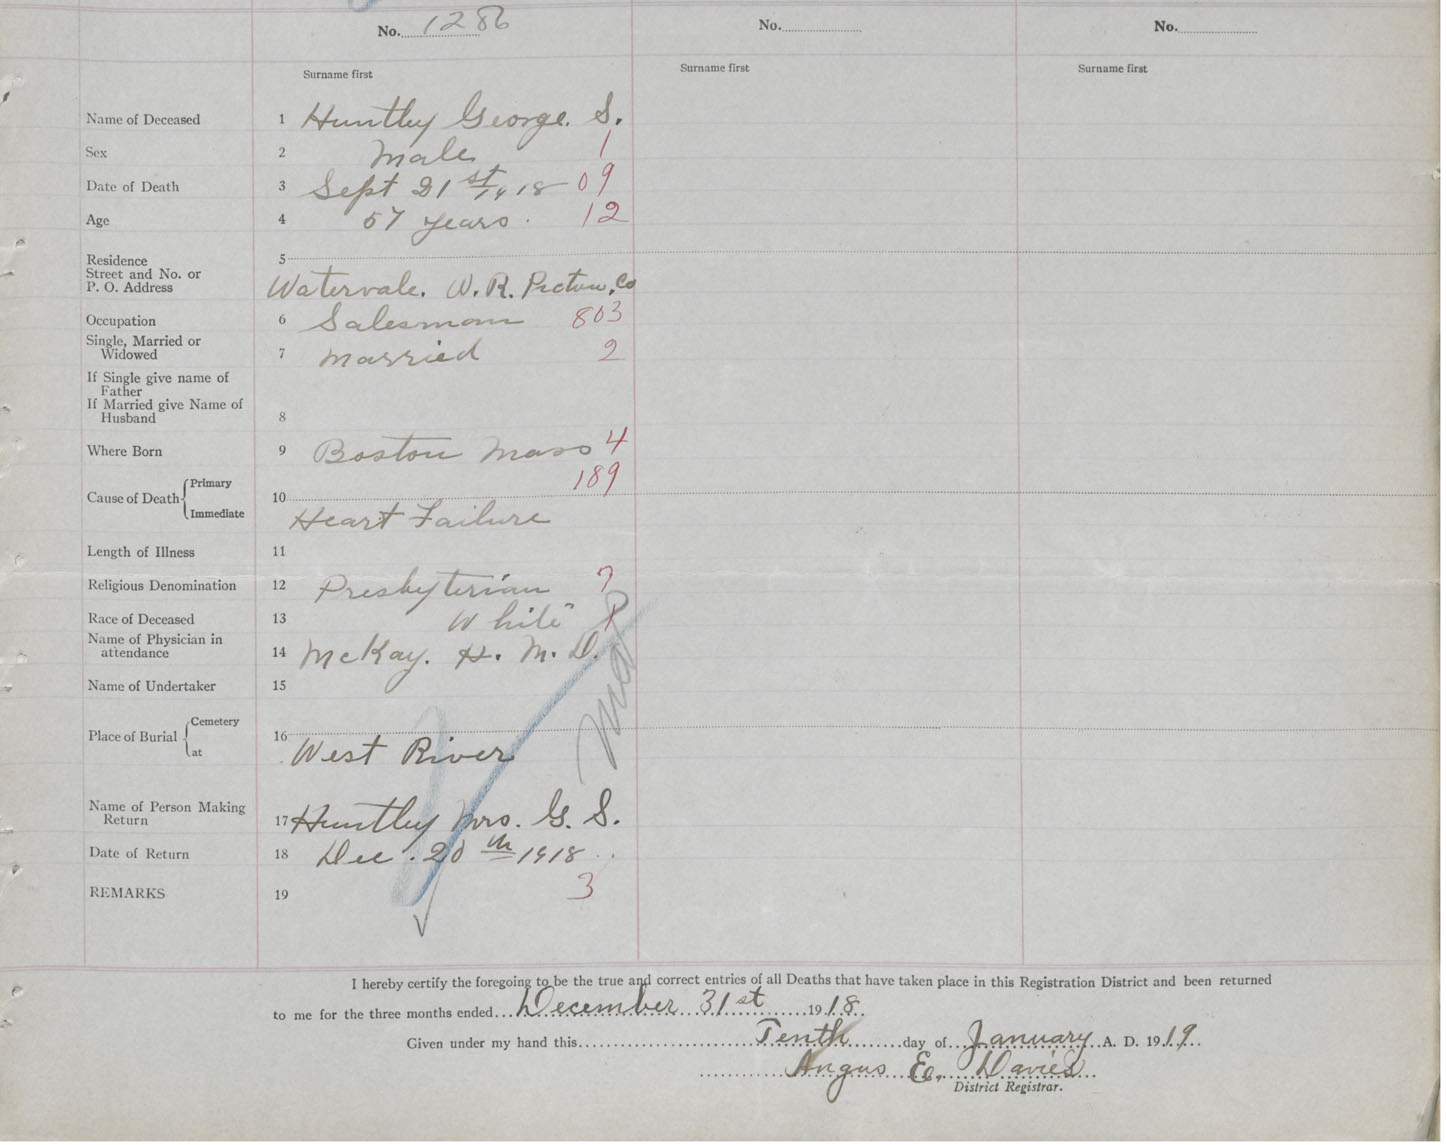 No. 1286 No. No.
Surname first Surname first Surname first
Name of Deceased 1 Huntley George. S.
Sex 2 Male 1
Date of Death 3 Sept 21st 1918 09
Age 4 57 years. 12
Residence 5
Street and No. or
P. O. Address Watervale. W. R. Pictou, Co
Occupation 6 Salesman 803
Single, Married or
Widowed 7 Married 2
If Single give name of
Father
If Married give Name of
Husband 8
Where Born 9 Boston Mass 4
189
Cause of Death Primary 10
Immediate Heart Failure
Length of Illness 11
Religious Denomination 12 Presbyterian 7
Race of Deceased 13 White 1
Name of Physician in
attendance 14 McKay. H. M. D.
Name of Undertaker 15
Place of Burial Cemetery 16
at West River
Name of Person Making
Return 17 Huntley Mrs. G. S.
Date of Return 18 Dec. 20th 1918
REMARKS 19 3
I hereby certify the foregoing to be the true and correct entries of all Deaths that have taken place in this Registration District and been returned
to me for the three months ended December 31st 1918.
Given under my hand this Tenth day of January A. D. 1919.
Angus E. Davies
District Registrar.